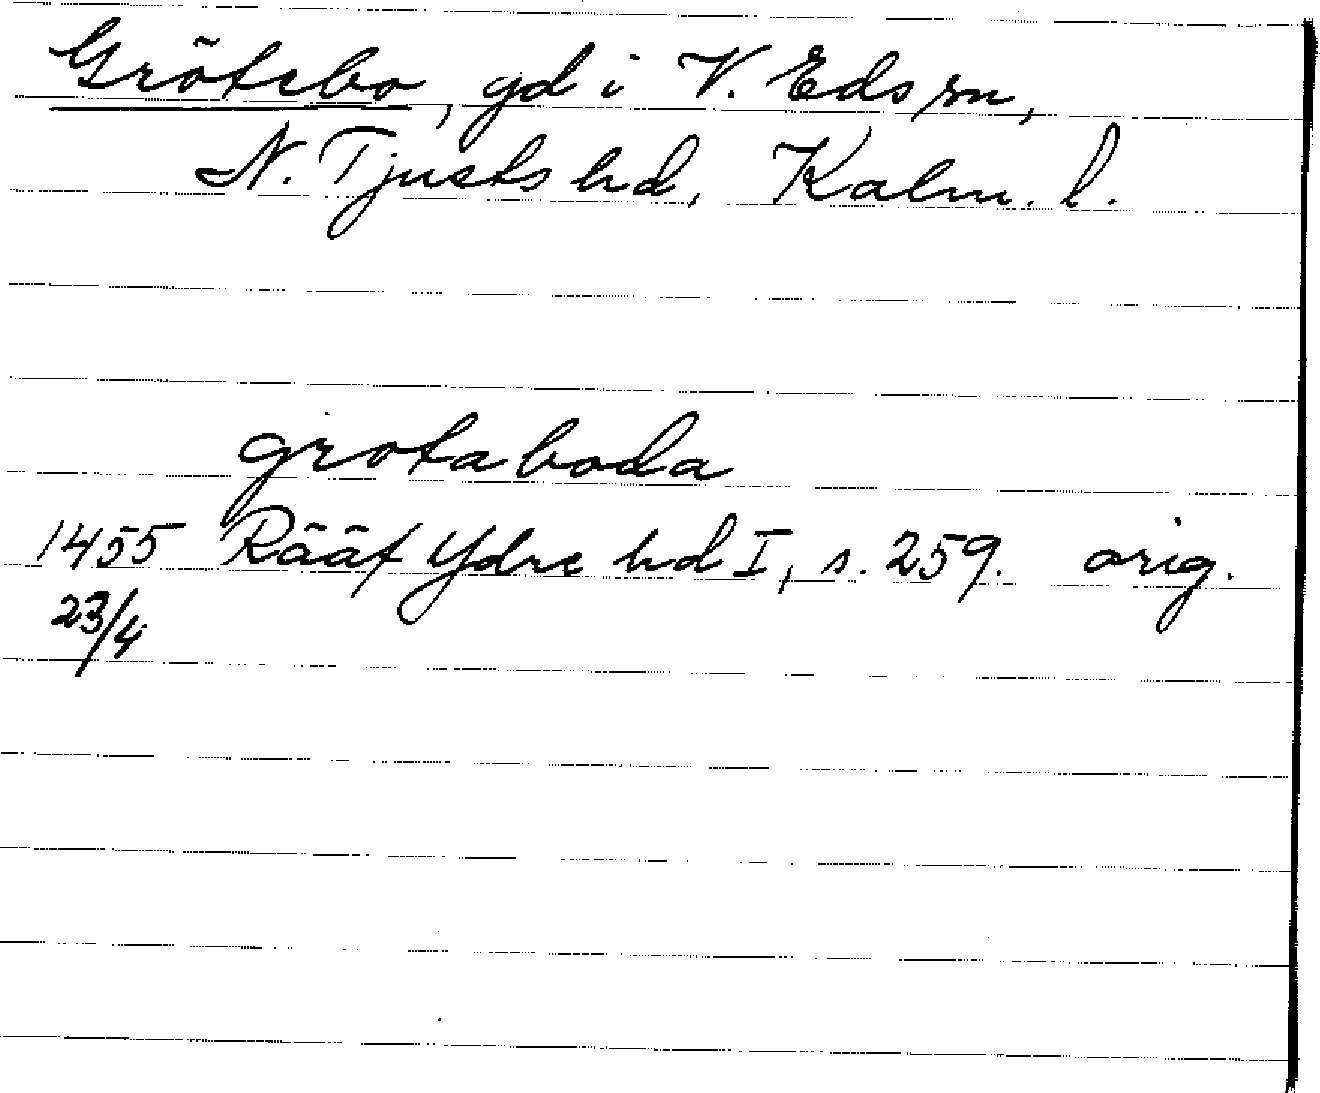 Grötebo, gd i V. Eds sn,
N. Tjusts hd, Kalm. l.
grotaboda
1455 Rääf Ydre hd I, s. 259. orig.
23/4